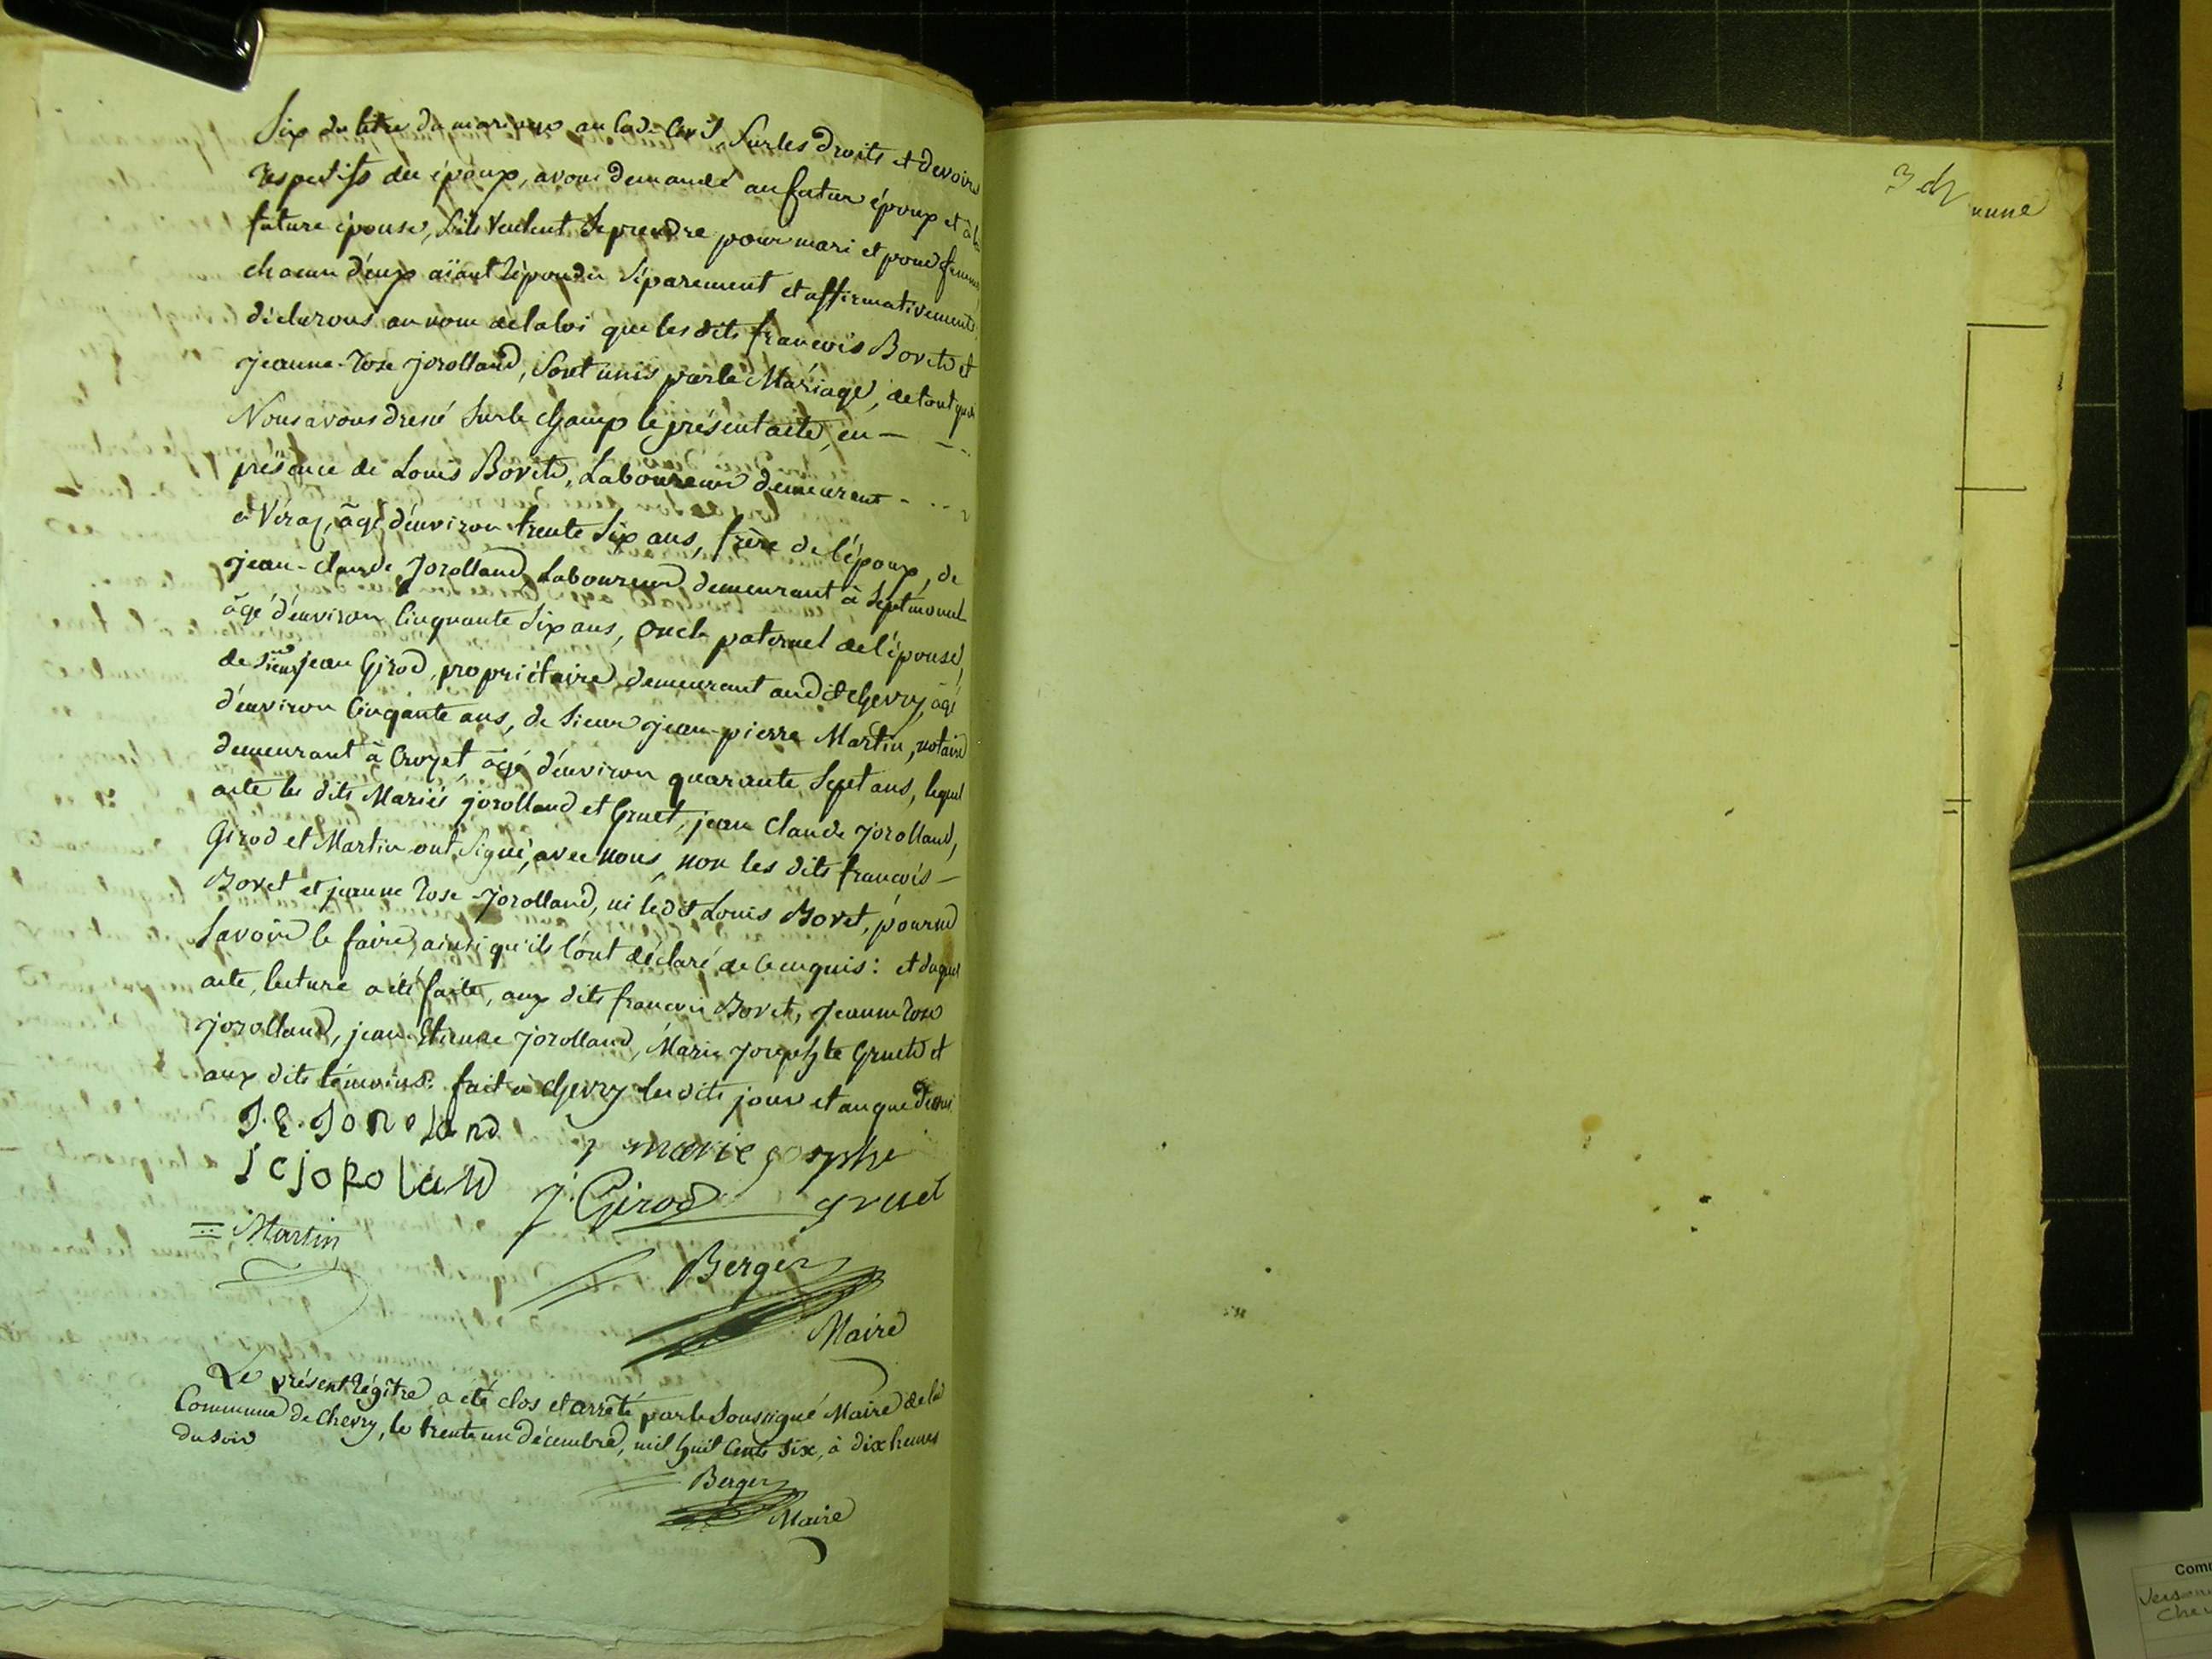 Six du titre du mariage au Code Civil, Sur les droits et devoirs
respectifs des époux, avons demandé au futur époux et à la
future épouse, s'ils veulent se prendre pour mari et pour femme,
chacun d'eux aïant répondu séparement et affirmativement,
déclarons au nom de la loi que les dits francois Bovet et
jeanne-Rose jorolland, sont unis par le Mariage, de tout quoi
Nous avons dressé sur le champ le présent acte, en -
présence de Louis Bovet, Laboureur demeurant -
à Véraz, âgé d'environ trente six ans, frère de l'époux, de
jean-claude Jorolland Laboureur demeurant à Septmoncel
âgé d'environ Cinquante Six ans, oncle paternel de l'épouse,
de sieur jean Girod, propriétaire demeurant audit chevry, âgé
d'environ Cinqante ans, de sieur jean-pierre Martin, notaire
demeurant à Crozet, âgé d'environ quarante sept ans, lequel
acte les dits Mariés jorolland et Gruet, jean Claude jorolland,
Girod et Martin ont signé, avec nous, non les dits francois -
Bovet et jeanne Rose Jorolland, ni ledit Louis Bovet, pour ne
savoir le faire, ainsi qu'ils l'ont déclaré de ce enquis : et duquel
acte, lecture a été faite, aux dits francois Bovet, Jeanne Rose
jorolland, jean Etienne jorolland, Marie josephte Gruet et
aux dits témoins. fait à chevry les dits jour et an que dessus
J. E. JoRolanD
marie josphe
J C joRolanD
J. Girod
gruet
Martin
Berger
Maire
Le présent régître a été clos et arrêté par le soussigné Maire de la
Commune de chevry, le trente un décembre, mil huit Cents six, à dix heures
du soir
Berger
Maire
Comm
Che